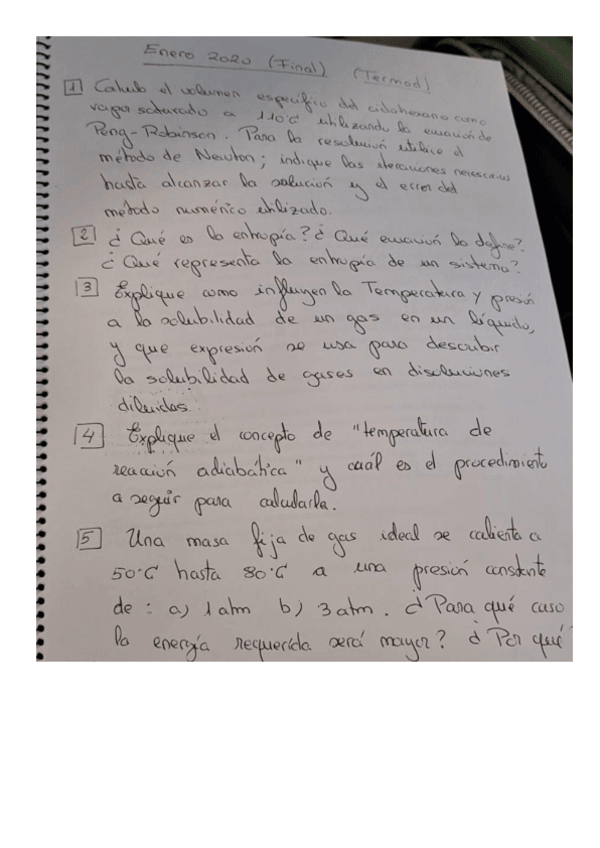 Enero 2020 (Final) (Termod)
1 Calcule el volumen específico del ciclohexano como
vapor saturado a 110°C utilizando la ecuación de
Peng-Robinson. Para la resolución utilice el
método de Newton; indique las iteraciones necesarias
hasta alcanzar la solución y el error del
método numérico utilizado.
2 ¿Qué es la entropía? ¿Qué ecuación la define?
¿Qué representa la entropía de un sistema?
3 Explique como influyen la Temperatura y presión
a la solubilidad de un gas en un líquido,
y que expresión se usa para describir
la solubilidad de gases en disoluciones
diluidas.
4 Explique el concepto de "temperatura de
reacción adiabática" y cuál es el procedimiento
a seguir para calcularla.
5 Una masa fija de gas ideal se calienta a
50°C hasta 80°C a una presión constante
de: a) 1 atm b) 3 atm. ¿Para qué caso
la energía requerida será mayor? ¿Por qué